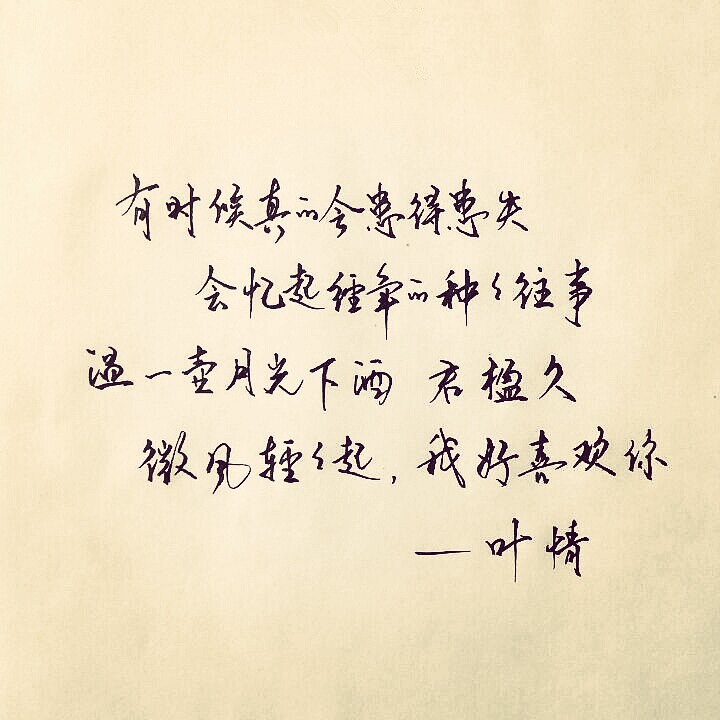 有时候真的会患得患失
会忆起經年的种々往事
温一壶月光下酒 君楹久
微风輕々起，我好喜欢你
—叶情